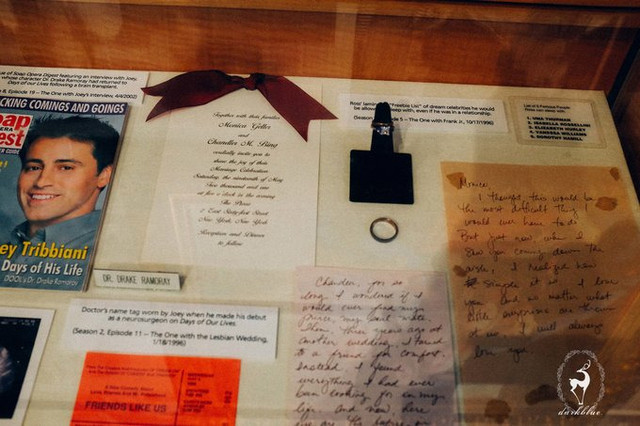 ue of Soap Opera Digest featuring an interview with Joey,
whose character Dr. Drake Ramoray had returned to
Days of our Lives following a brain transplant.
8, Episode 19 – The One with Joey's Interview, 4/4/2002)
CKING COMINGS AND GOINGS
oap
ERA
est
ey Tribbiani
Days of His Life
DOOL's Dr. Drake Ramoray
DR. DRAKE RAMORAY
Together with their families
Monica Geller
and
Chandler M. Bing
cordially invite you to
share the joy of their
Marriage Celebration
Saturday, the nineteenth of May
Two thousand and one
at five o'clock in the evening
The Plaza
2 East Sixty-first Street
New York, New York
Reception and Dinner
to follow
Ross' laminated "Freebie List" of dream celebrities he would
be allowed to sleep with, even if he was in a relationship.
(Season 3, Episode 5 – The One with Frank Jr., 10/17/1996)
1. UMA THURMAN
2. ISABELLA ROSSELLINI
3. ELIZABETH HURLEY
4. VANESSA WILLIAMS
5. DOROTHY HAMILL
Monica,
I thought this would be
the most difficult thing
I would ever have to do.
But just now when I
saw you coming down the
aisle, I realized how
simple it is. I love
you. And no matter what
surprises are thrown
at us I will always
love you.
Doctor's name tag worn by Joey when he made his debut
as a neurosurgeon on Days of Our Lives
(Season 2, Episode 11 – The One with the Lesbian Wedding,
1/18/1996)
FRIENDS LIKE US
Chandler, for so
long I wondered if I
would ever find my
prince, my soul mate.
Then, three years ago at
another wedding, I turned
to a friend for comfort.
Instead, I found
everything I had ever
been looking for in my
life. And now, here
we are
darkblue